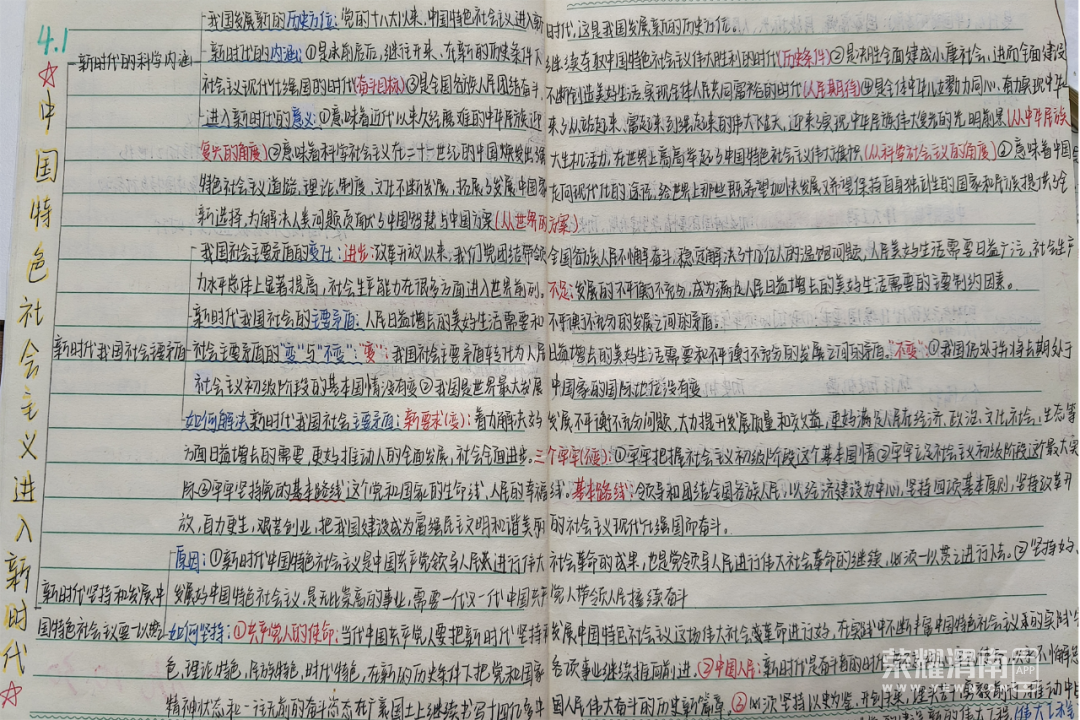 4.1
☆中国特色社会主义进入新时代☆
我国发展新的历史方位：党的十八大以来，中国特色社会主义进入新时代，这是我国发展新的历史方位。
新时代的科学内涵
新时代的内涵：①是承前启后、继往开来、在新的历史条件下继续夺取中国特色社会主义伟大胜利的时代(历史条件)②是决胜全面建成小康社会，进而全面建设
社会主义现代化强国的时代(奋斗目标)③是全国各族人民团结奋斗、不断创造美好生活、实现全体人民共同富裕的时代(人民期待)④是全体中华儿女勠力同心、奋力实现中华
进入新时代的意义：①意味着近代以来久经磨难的中华民族迎来了从站起来、富起来到强起来的伟大飞跃，迎来了实现中华民族伟大复兴的光明前景(从中华民族
复兴的角度)②意味着科学社会主义在二十一世纪的中国焕发出强大生机活力，在世界上高高举起了中国特色社会主义伟大旗帜(从科学社会主义的角度)③意味着中国
特色社会主义道路、理论、制度、文化不断发展，拓展了发展中国家走向现代化的途径，给世界上那些既希望加快发展又希望保持自身独立性的国家和民族提供了全
新选择，为解决人类问题贡献了中国智慧与中国方案(从世界的方案)
我国社会主要矛盾的变化：进步：改革开放以来，我们党团结带领全国各族人民不懈奋斗，稳定解决了十几亿人的温饱问题，人民美好生活需要日益广泛，社会生产
力水平总体上显著提高，社会生产能力在很多方面进入世界前列。不足：发展的不平衡不充分，成为满足人民日益增长的美好生活需要的主要制约因素。
新时代我国社会的主要矛盾：人民日益增长的美好生活需要和不平衡不充分的发展之间的矛盾。
新时代我国社会主要矛盾
社会主要矛盾的"变"与"不变"："变"：我国社会主要矛盾转化为人民日益增长的美好生活需要和不平衡不充分的发展之间的矛盾。"不变"：①我国仍处于并将长期处于
社会主义初级阶段的基本国情没有变②我国是世界最大发展中国家的国际地位没有变
如何解决新时代我国社会主要矛盾：新要求(变)：着力解决好发展不平衡不充分问题，大力提升发展质量和效益，更好满足人民在经济、政治、文化、社会、生态等
方面日益增长的需要，更好推动人的全面发展、社会全面进步。三个牢牢(不变)：①牢牢把握社会主义初级阶段这个基本国情②牢牢立足社会主义初级阶段这个最大实
际③牢牢坚持党的基本路线这个党和国家的生命线、人民的幸福线。基本路线：领导和团结全国各族人民，以经济建设为中心，坚持四项基本原则，坚持改革开
放，自力更生，艰苦创业，把我国建设成为富强民主文明和谐美丽的社会主义现代化强国而奋斗。
原因：①新时代中国特色社会主义是中国共产党领导人民进行伟大社会革命的成果，也是党领导人民进行伟大社会革命的继续，必须一以贯之进行下去。②坚持好、
新时代坚持和发展中
发展好中国特色社会主义，是无比崇高的事业，需要一代又一代中国共产党人带领人民接续奋斗
国特色社会主义要一以贯之
如何坚持：①共产党人的使命：当代中国共产党人要把新时代坚持和发展中国特色社会主义这场伟大社会革命进行好，在实践中不断丰富中国特色社会主义的实践特
色、理论特色、民族特色、时代特色，在新的历史条件下把党和国家各项事业继续推向前进。②中国人民：新时代是奋斗者的时代
精神状态和一往无前的奋斗姿态在广袤国土上继续书写十四亿多中国人民伟大奋斗的历史新篇章。③必须坚持以史为鉴、开创未来
荣耀渭南网 APP